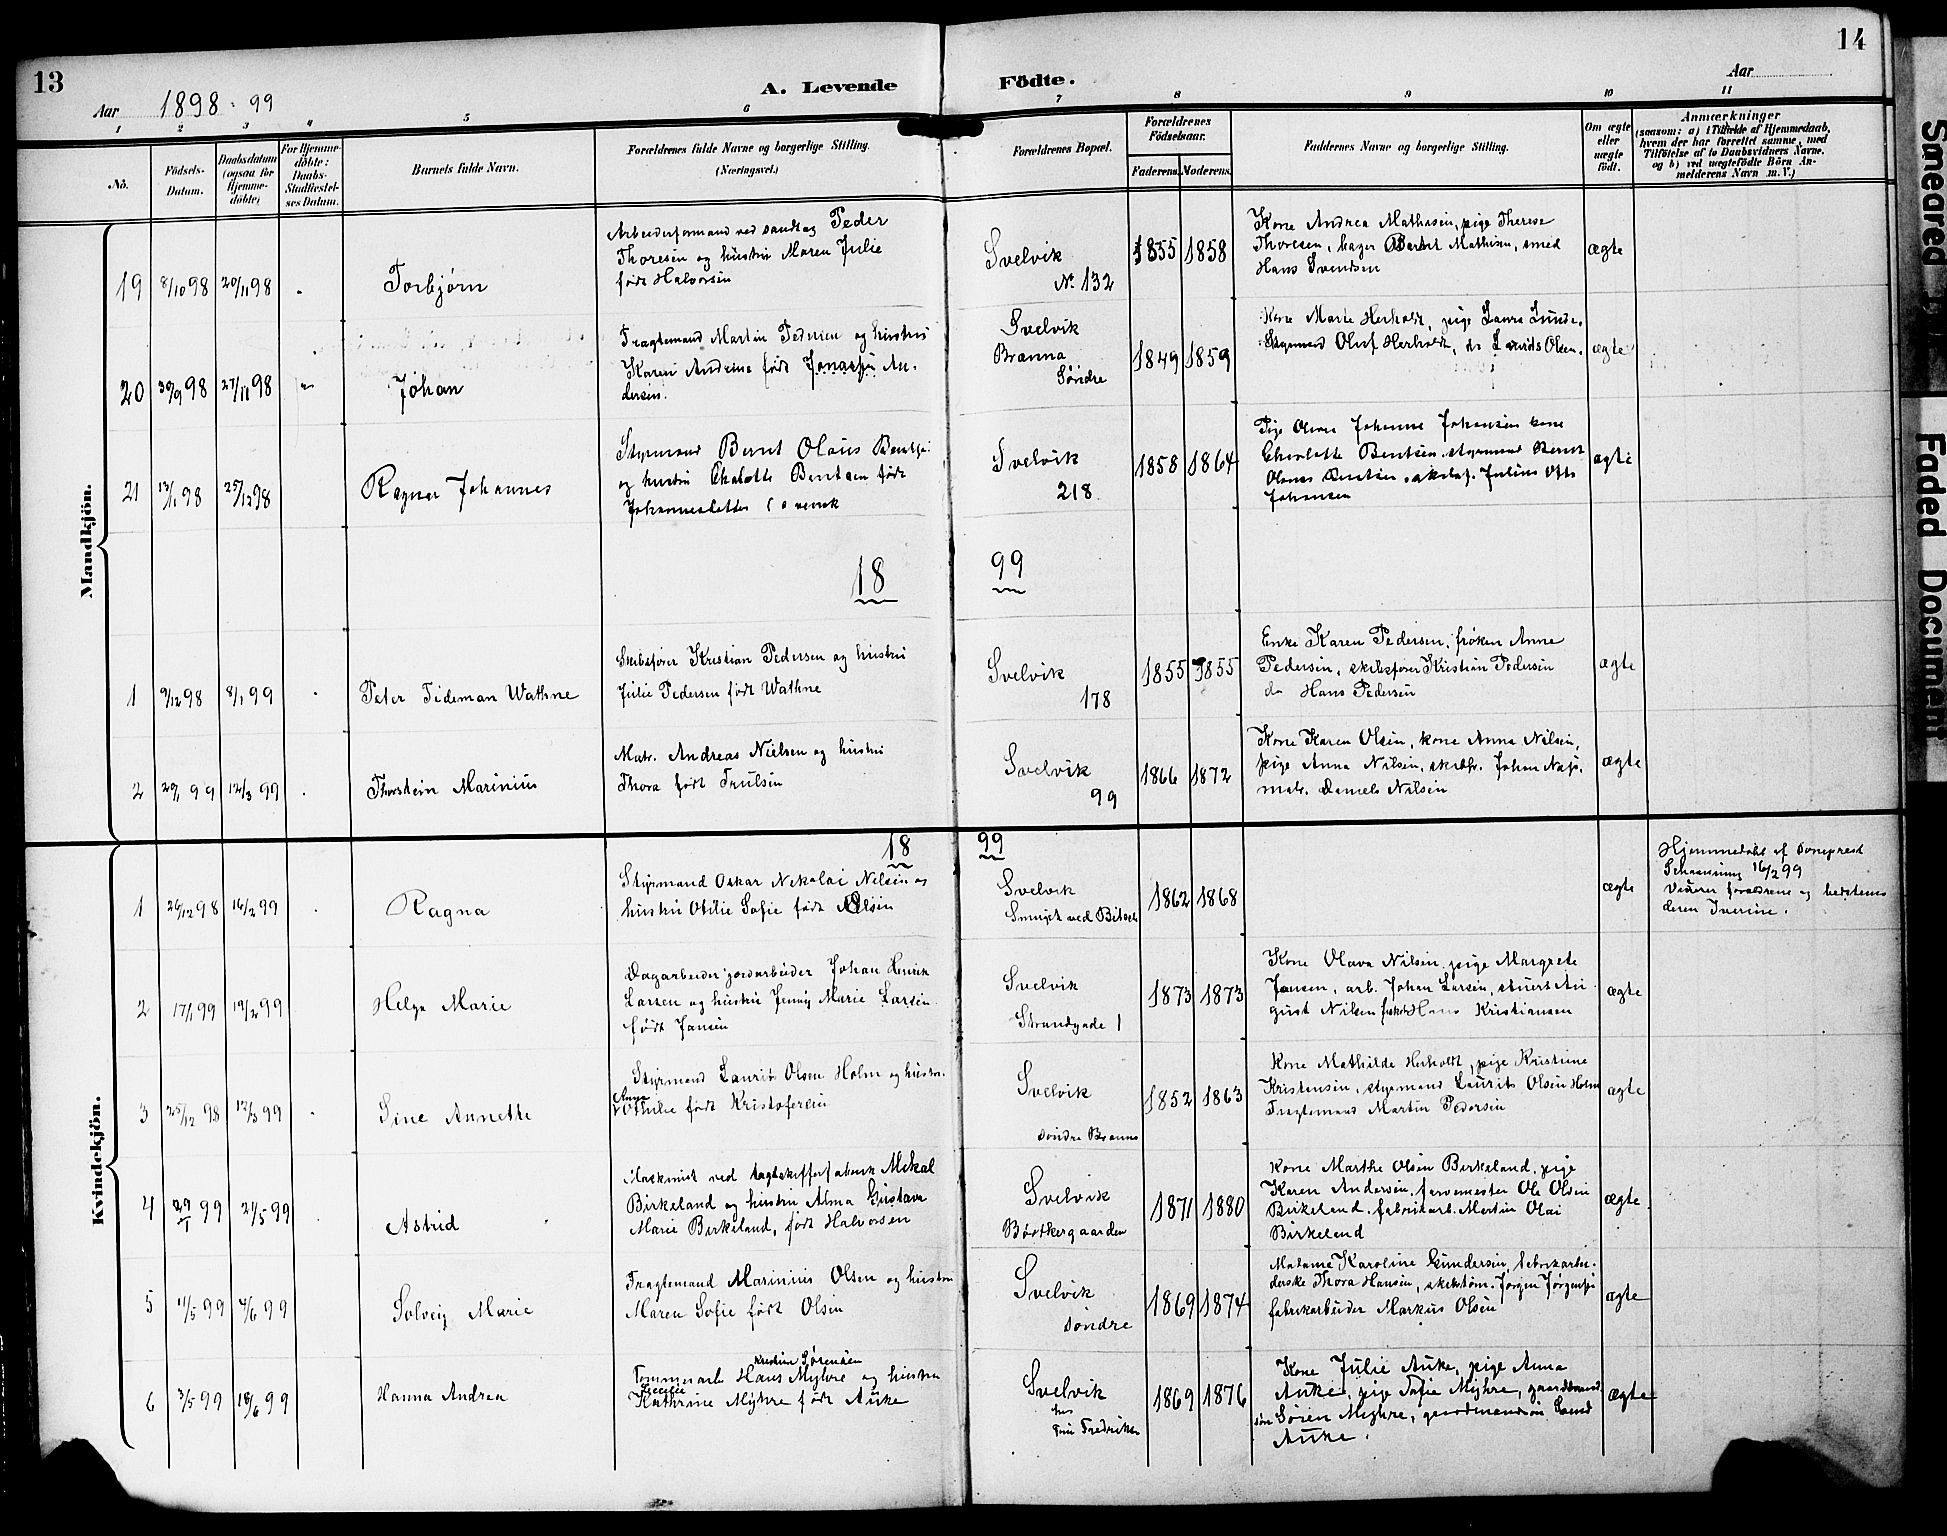 13
14
A. Levende Födte.
Aar 1898-99
Aar
1 2 3 4 5 6 7 8 9 10 11
No.
Födsels-Datum.
Daabsdatum (ogsaa for Hjemme-döbte)
For Hjemme-döbte: Daabs-Stadfæstel-ses Datum.
Barnets fulde Navn.
Forældrenes fulde Navne og borgerlige Stilling. (Næringsvei.)
Forældrenes Bopæl.
Forældrenes Födselsaar.
Faderens. Moderens.
Faddernes Navne og borgerlige Stilling.
Om ægte eller uægte födt.
Anmærkninger
(saasom: a) i Tilfælde af Hjemmedaab, hvem der har forrettet samme, med Tilföielse af to Daabsvidners Navne. og b) ved uægtefödte Börn Anmelderens Navn m. V.)
Mandkjön.
19 8/10 98 20/11 98 Torbjørn
Arbeiderformand ved sandtag Peder
Thoresen og hustru Maren Julie
født Halvorsen
Svelvik
No 132
1855 1858
Kone Andrea Mathisen, pige Therese
Thoresen, bager Bernt Mathisen, smed
Hans Svendsen
ægte
20 30/9 98 27/11 98 Johan
Fragtemand Martin Pedersen og hustru
Karen Andrine født Jonassen An-
dersen.
Svelvik
Branna
Søndre
1849 1859
Kone Marie Herholdt, pige Laura Lunde,
Styrmand Oluf Herholdt, do Laurids Olsen.
ægte
21 13/11 98 25/12 98 Ragnar Johannes
Styrmand Bernt Olaus Bentse
og hustru Charlotte Bentsen født
Johannesdotter (svensk
Svelvik
218
1858 1864
Pige Olava Johanne Johansen kone
Charlotte Bentsen, styrmand Bernt
Olaus Bentsen, skibsf. Julius Otto
Johansen
ægte
18 99
1 9/12 98 8/1 99 Peter Tideman Wathne
Skibsfører Kristian Pedersen og hustru
Julie Pedersen født Wathne
Svelvik
178
1855 1855
Enke Karen Pedersen, frøken Anne
Pedersen, skibsfører Kristian Pedersen
do Hans Pedersen
ægte
2 29/1 99 12/3 99 Thorstein Marinius
Matr. Andreas Nielsen og hustru
Thora født Trulsen
Svelvik
99
1866 1872
Kone Karen Olsen, kone Anna Nilsen,
pige Anna Nilsen, skibsf. Johan
matr. Daniels Nilsen
ægte
Kvindekjön.
18 99
1 26/12 98 16/2 99 Ragna
Styrmand Oskar Nikolai Nilsen og
hustru Otilie Sofie født Olsen
Svelvik
Smuget ved
1862 1868
ægte
Hjemmedøbt af Sogneprest
Schanning 16/2 99
Vidner forældrene og bedstemo
deren Iverine.
2 17/1 99 19/2 99 Helga Marie
Dagarbeider jordarbeider Johan Henrik
Larsen og hustru Jenny Marie Larsen
født Jansen
Svelvik
Strandgade 1
1873 1873
Kone Olava Nilsen, pige Margrete
Jansen, arb. Johan Larsen, stuert Au-
gust Nilsen fisker Hans Kristiansen
ægte
3 25/12 98 12/3 99 Sine Annette
Styrmand Laurits Olsen Holm og hustru
Anna
Othilie født Kristofersen
Svelvik
søndre Branna
1852 1863
Kone Mathilde Herholdt, pige Kristine
Kristensen, styrmand Laurits Olsen Holm
Fragtemand Martin Pedersen
ægte
4 29/1 99 21/5 99 Astrid
Maskinist ved tagskifferfabrik Mikal
Birkeland og hustru Alma Gustava
Marie Birkeland, født Halvorsen
Svelvik
Bødtkergaarden
1871 1880
Kone Marthe Olsen Birkeland, pige
Karen Andersen, farvemester Ole Olsen
Birkeland, fabrikarb. Martin Olai
Birkeland
ægte
5 11/5 99 4/6 99 Solveig Marie
Fragtemand Marinius Olsen og hustru
Maren Sofie født Olsen
Svelvik
søndre
1869 1874
Madame Karoline Gundersen, fabrikarbei-
derske Thora Hansen, skibstøm. Jørgen Jørgensen
fabrikarbeider Markus Olsen
ægte
6 3/5 99 18/6 99 Hanna Andrea
Kristian Sørensen
Tømmerarb Hans Myhre og hustru
Kathrine Myhre født Auke
Svelvik
hos
Fredriksen
1869 1876
Kone Julie Auke, pige Anna
Auke, pige Sofie Myhre, gaardbruger
søn Søren Myhre, gaardmandssøn
Auke.
ægte
Smeared
Faded Document